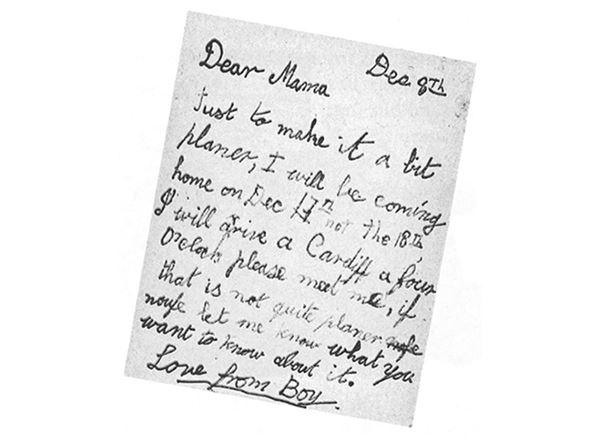 Dec 8Th
Dear Mama
Just to make it a bit
planer, I will be coming
home on Dec 17th not the 18th,
I will arive a Cardiff a four
O'clock please meet me, if
that is not quite planer
noufe let me know what you
want to know about it.
Love from Boy.